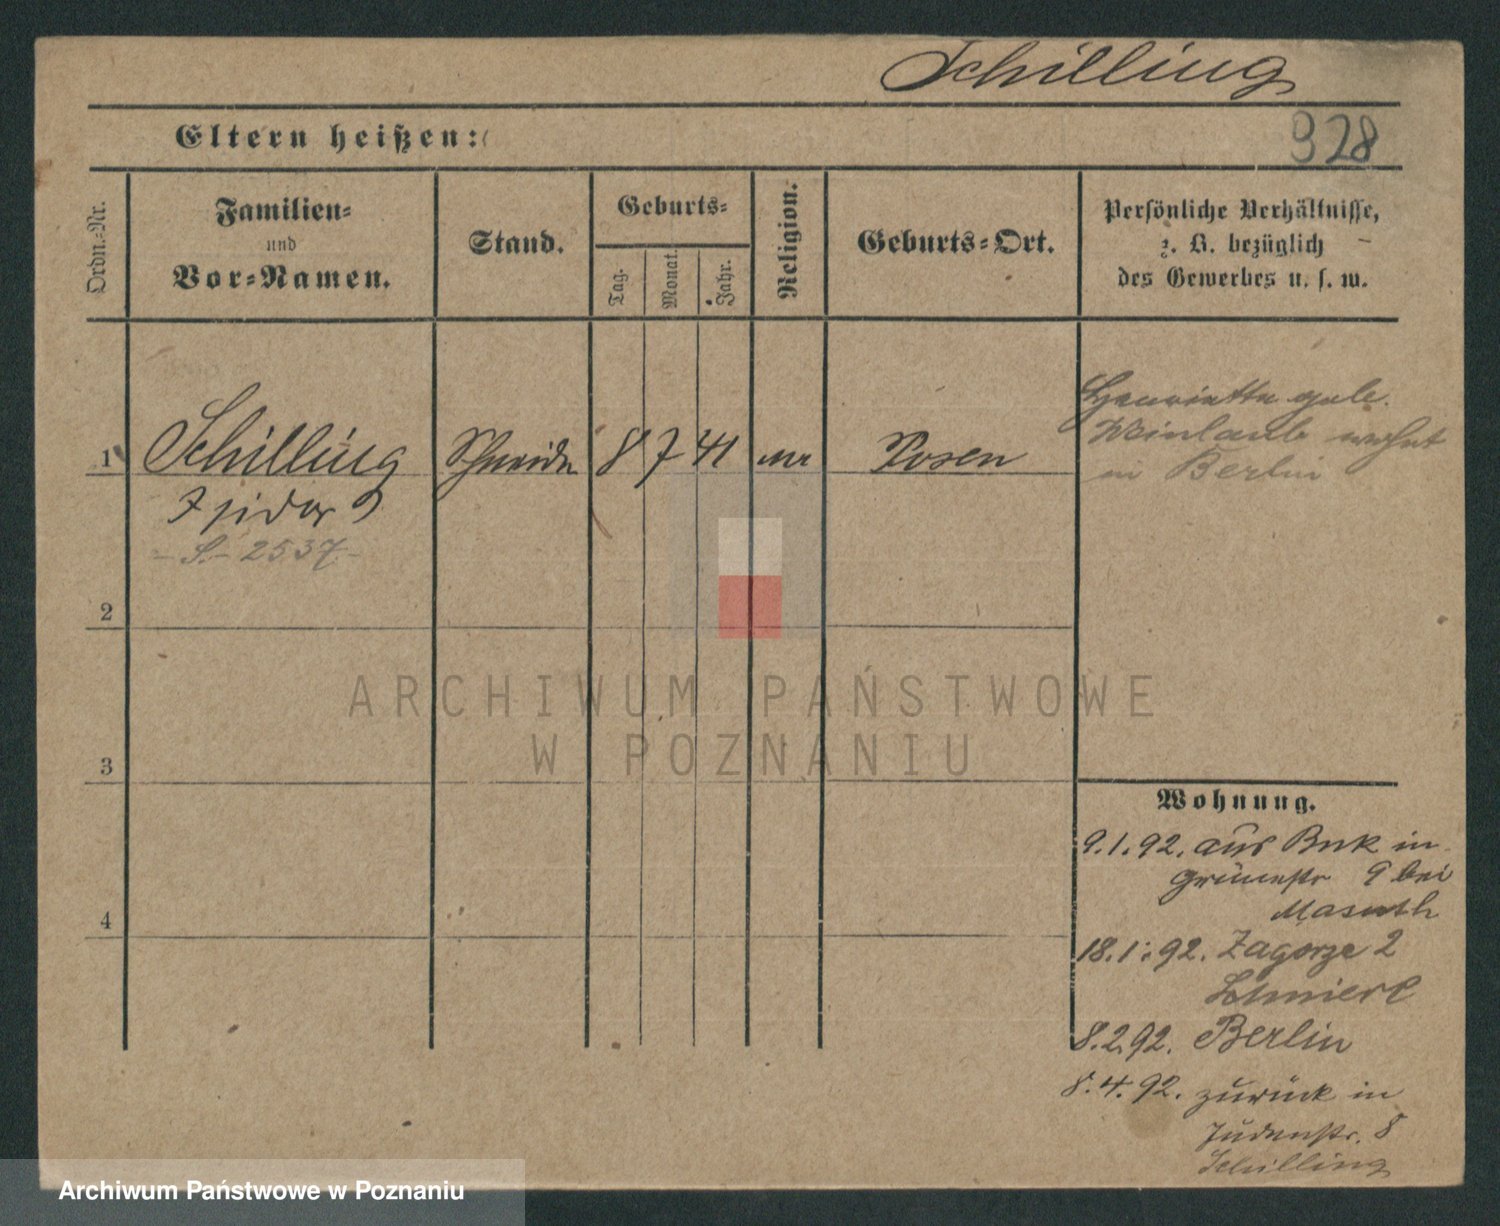 Schilling
Eltern heißen:
928
Ordn.-Nr.
Familien-
und
Vor-Namen.
Stand.
Geburts-
Tag.
Monat.
Jahr.
Religion.
Geburts-Ort.
Persönliche Verhältnisse,
z. B. bezüglich
des Gewerbes u. s. w.
1
Schilling
Isidor
- S. - 2537 -
Schneider
8
7
41
Posen
Henriette geb.
Weinlaub wohnt
in Berlin
2
3
4
ARCHIWUM PAŃSTWOWE
W POZNANIU
Wohnung.
9.1.92. aus Buk in
Grünestr 9 bei
18.1.92. Zagorze 2
8.2.92. Berlin
8.4.92. zurück in
Judenstr. 8
Schilling
Archiwum Państwowe w Poznaniu